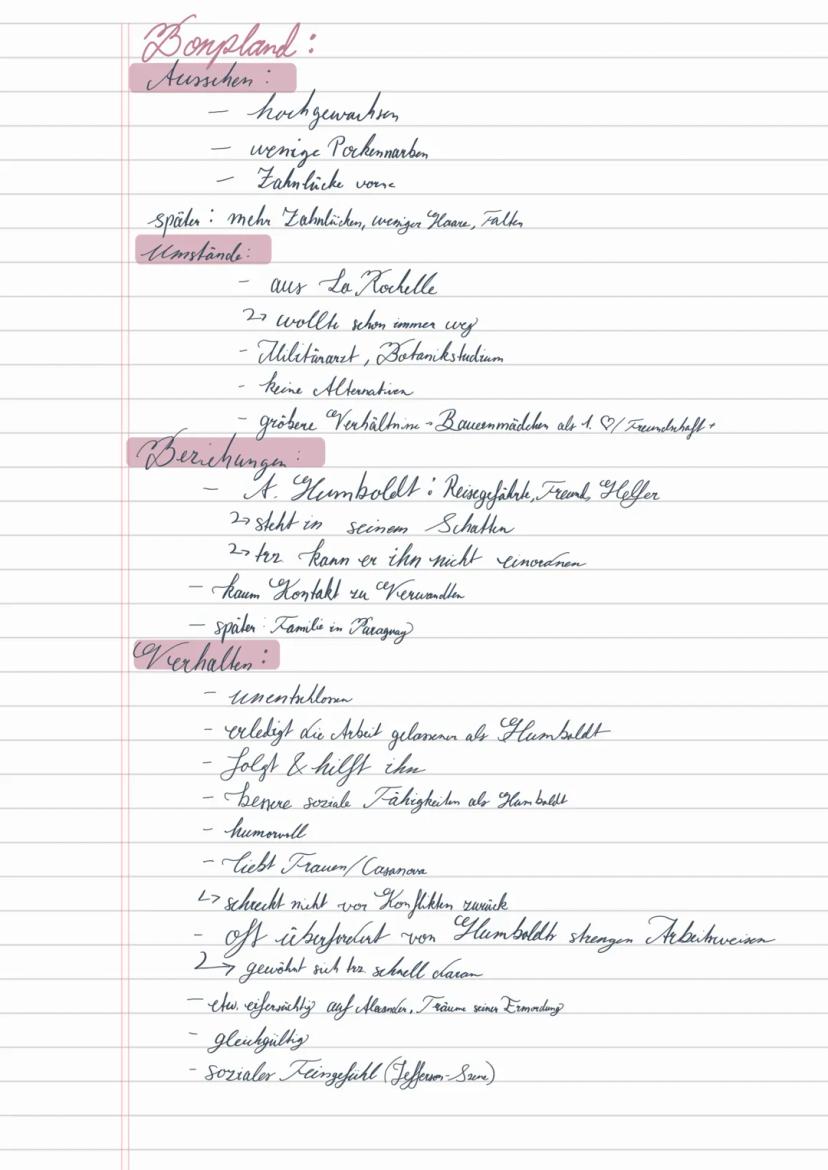 Bonpland:
Aussehen:
- hochgewachsen
- wenige Pockennarben
- Zahnlücke vorne
später: mehr Zahnlücken, weniger Haare, Falten
Umstände:
- aus La Rochelle
↳ wollte schon immer weg
- Militärarzt, Botanikstudium
- keine Alternativen
- gröbere Verhältnisse - Bauernmädchen als 1. ♡/Freundschaft+
Beziehungen:
- A. Humboldt: Reisegefährte, Freund, Helfer
↳ steht in seinem Schatten
↳ trz kann er ihn nicht einordnen
- kaum Kontakt zu Verwandten
- später: Familie in Paraguay
Verhalten:
- unentschlossen
- erledigt die Arbeit gelassener als Humboldt
- folgt & hilft ihn
- bessere soziale Fähigkeiten als Humboldt
- humorvoll
- liebt Frauen/Casanova
↳ schreckt nicht vor Konflikten zurück
- oft überfordert von Humboldts strengen Arbeitsweisen
↳ gewöhnt sich trz. schnell daran
- etw. eifersüchtig auf Alexander, Träume seiner Ermordung
- gleichgültig
- sozialer Feingefühl (Jefferson-Szene)